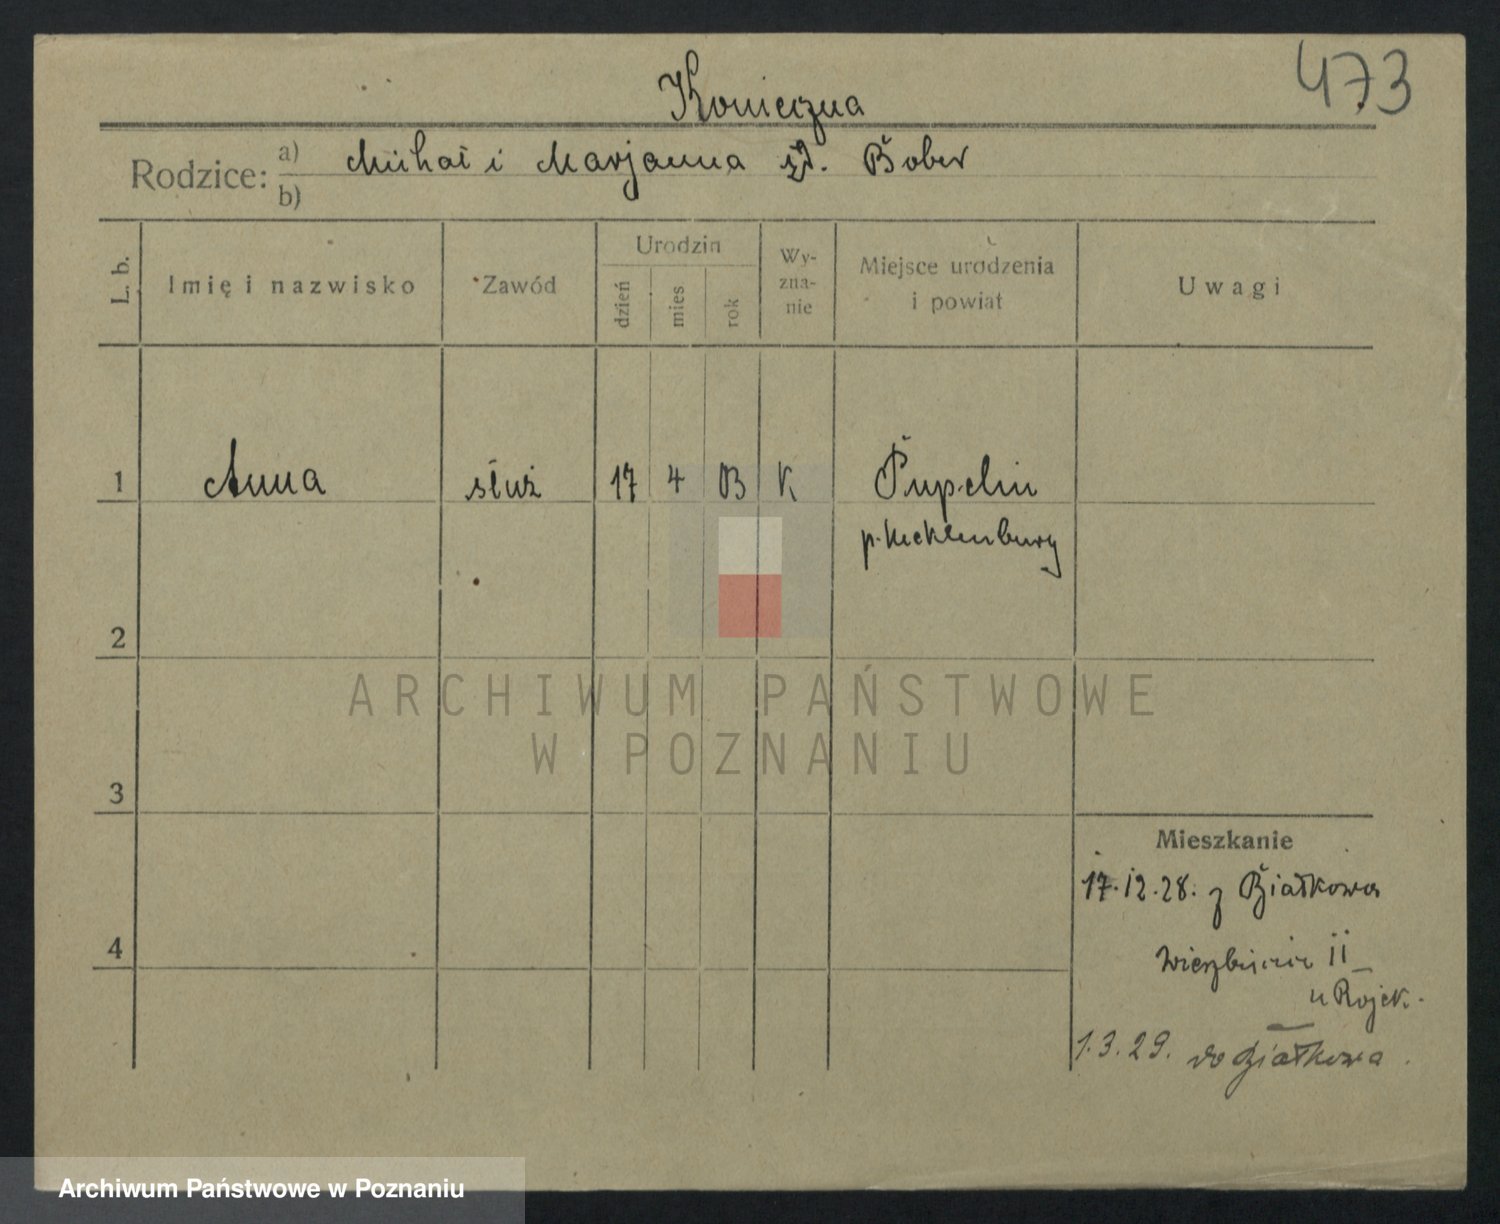 473
Konieczna
Rodzice: a) Michał i Marjanna zd. Bober
b)
L. b. Imię i nazwisko Zawód Urodzin dzień mies rok Wyznanie Miejsce urodzenia i powiat Uwagi
1 Anna służ 17 4 03 K Pupelin
p. Mecklenburg
2
3
4
Mieszkanie
17.12.28. z Białkowa
II
u Rojek.
1.3.29. do Białkowa.
ARCHIWUM PAŃSTWOWE
W POZNANIU
Archiwum Państwowe w Poznaniu